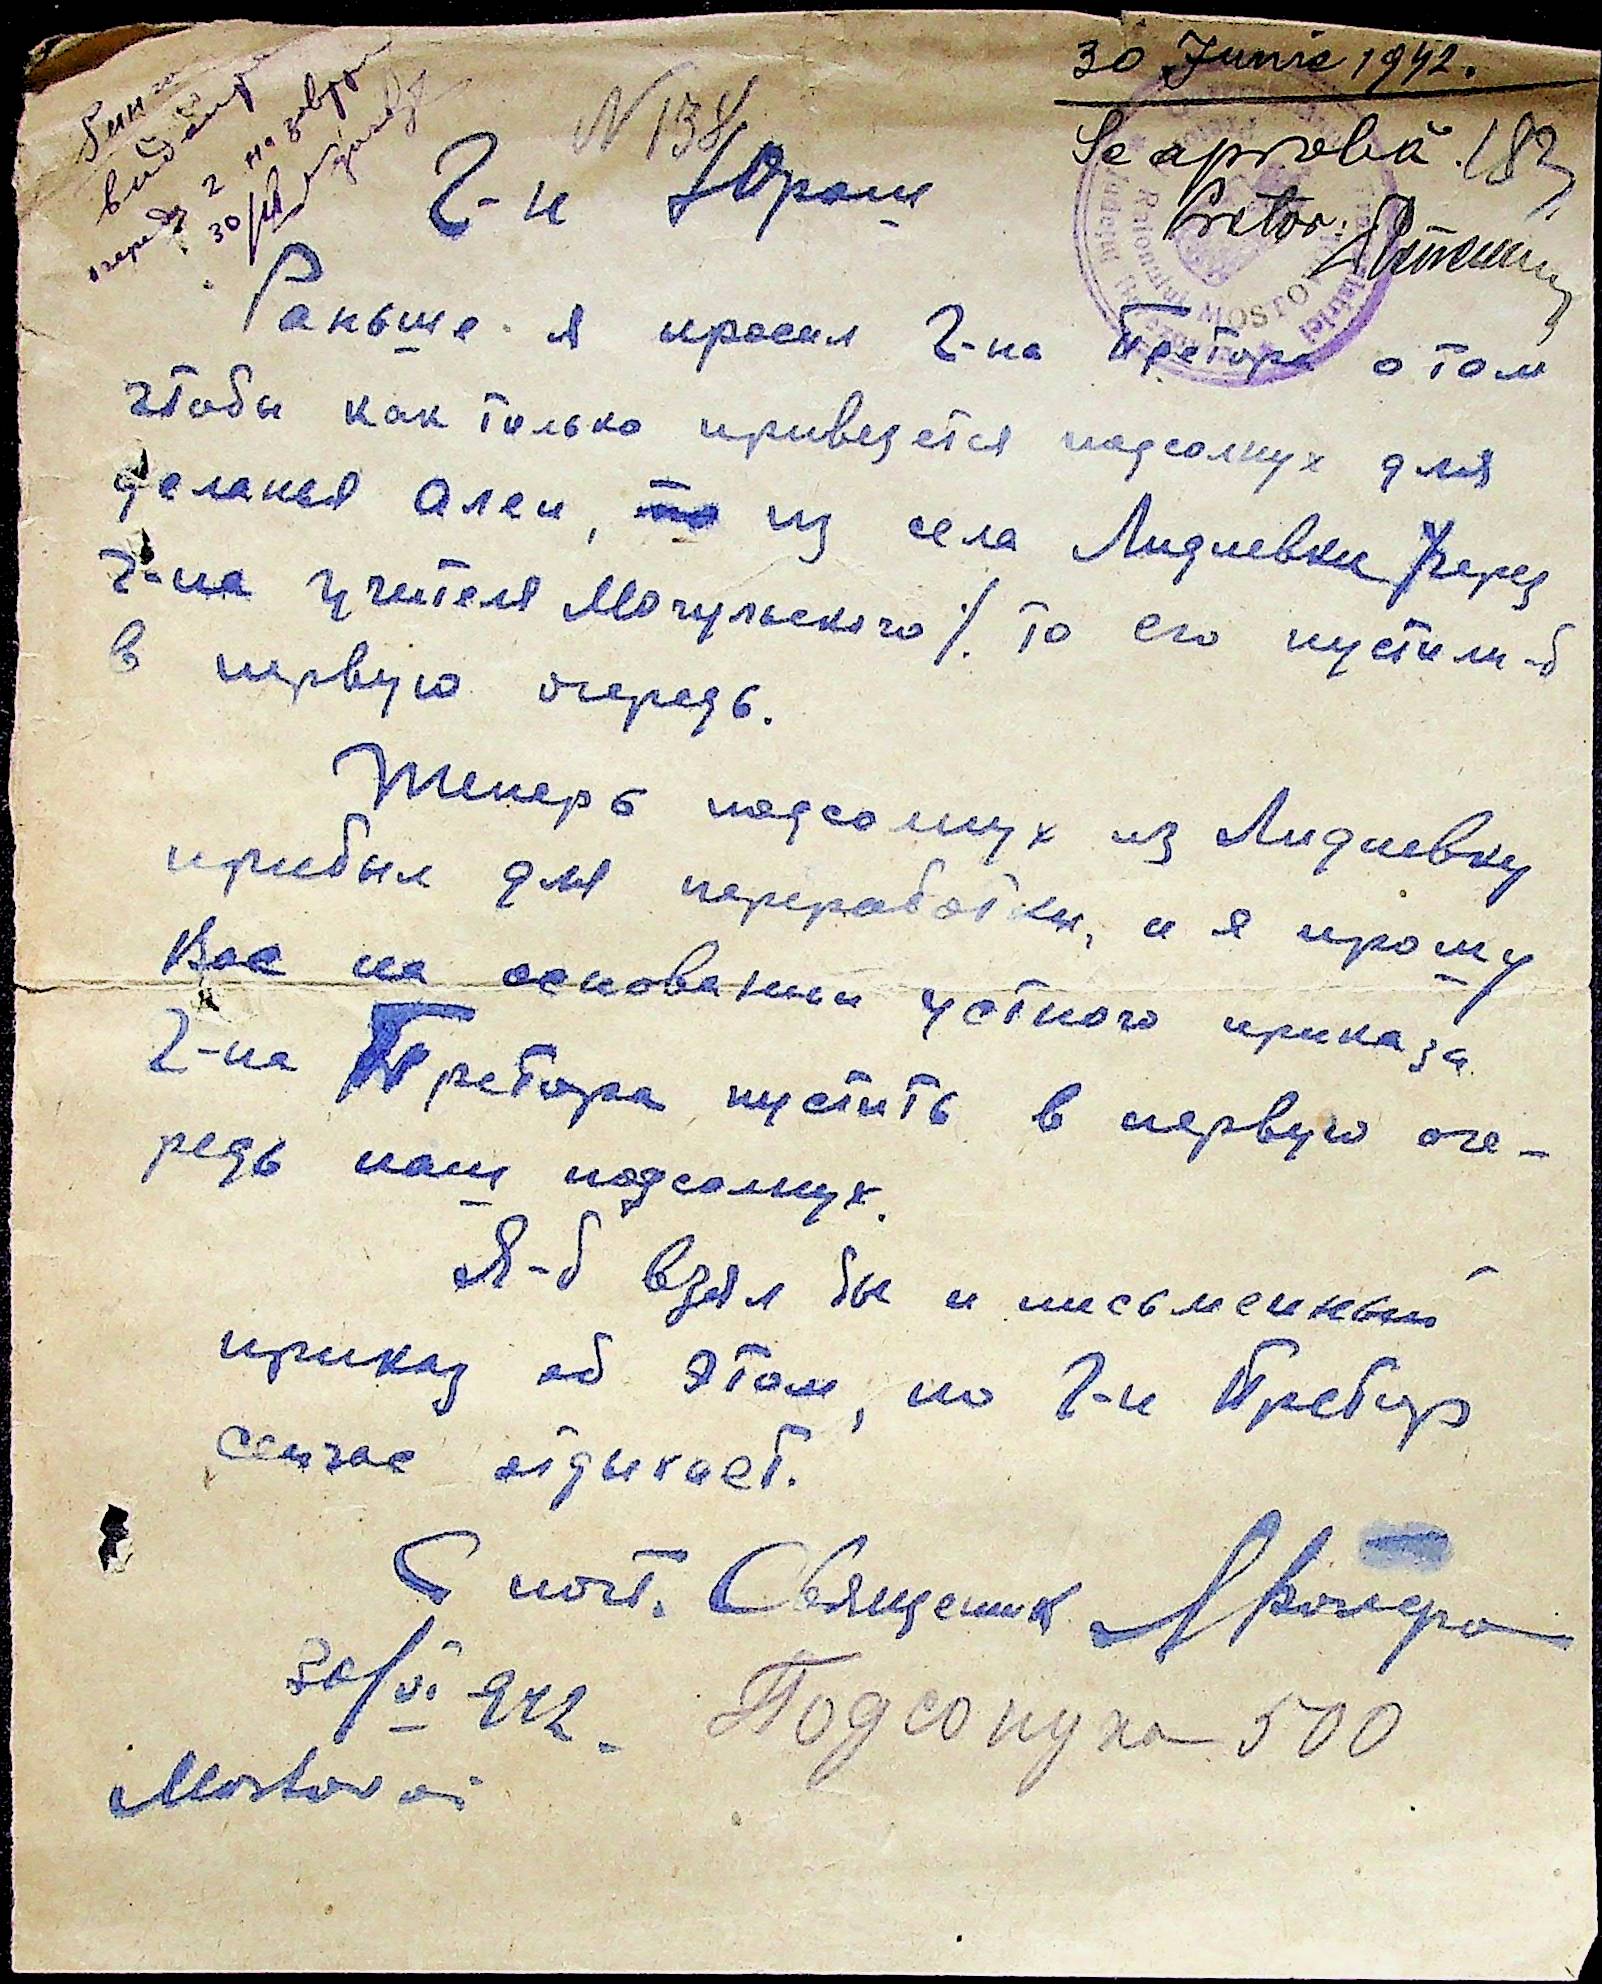 30 Junie 1942.
Se aprobă.
Pretor
N 138
30/VI
Г-н Юраш
Раньше я просил Г-на Претора о том
чтобы как только привезется подсолнух для
деланья олеи, из села Лидиевки /через
Г-на учителя Могульского/. то его пустили-б
в первую очередь.
Теперь подсолнух из Лидиевку
прибыл для переработки, и я прошу
Вас на основании устного приказа
Г-на Претора пустить в первую оче-
редь наш подсолнух.
Я-б взял бы и письменный
приказ об этом, но Г-н Претор
сейчас отдыхает.
С почт. Священик
30/VI 942.
Подсонуха 500
Mostovoi